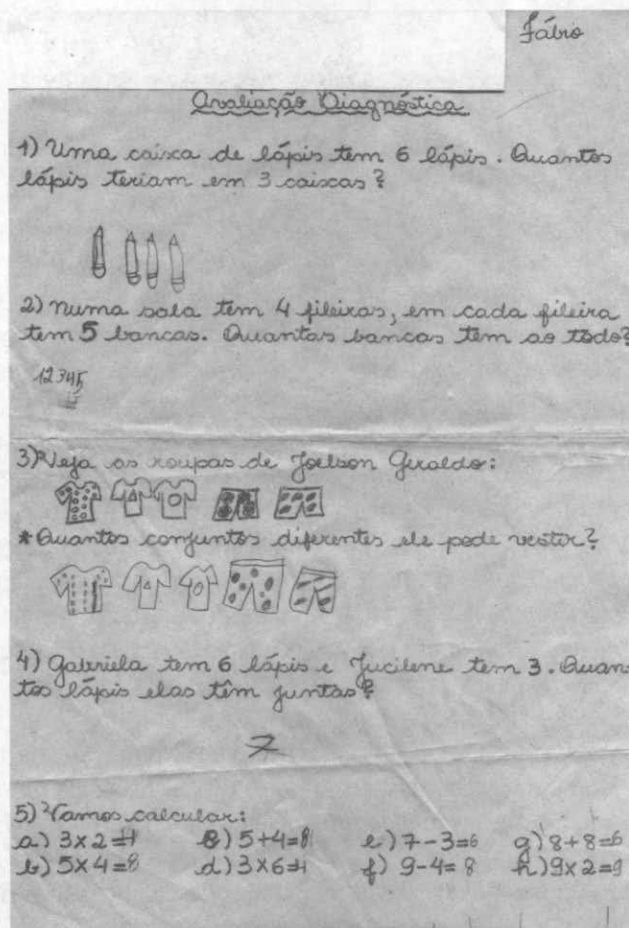 Fábio
Avaliação Diagnóstica
1) Uma caixa de lápis tem 6 lápis. Quantos
lápis teriam em 3 caixas?
2) Numa sala tem 4 fileiras, em cada fileira
tem 5 bancas. Quantas bancas tem ao todo?
12345
3) Veja as roupas de Joelson Geraldo:
*Quantos conjuntos diferentes ele pode vestir?
4) Gabriela tem 6 lápis e Jucilene tem 3. Quan
tos lápis elas têm juntas?
7
5) Vamos calcular:
a) 3x2= 5+4=8 e) 7-3=6 g) 8+8=6
b) 5x4=8 d) 3x6= f) 9-4=8 h) 9x2=9